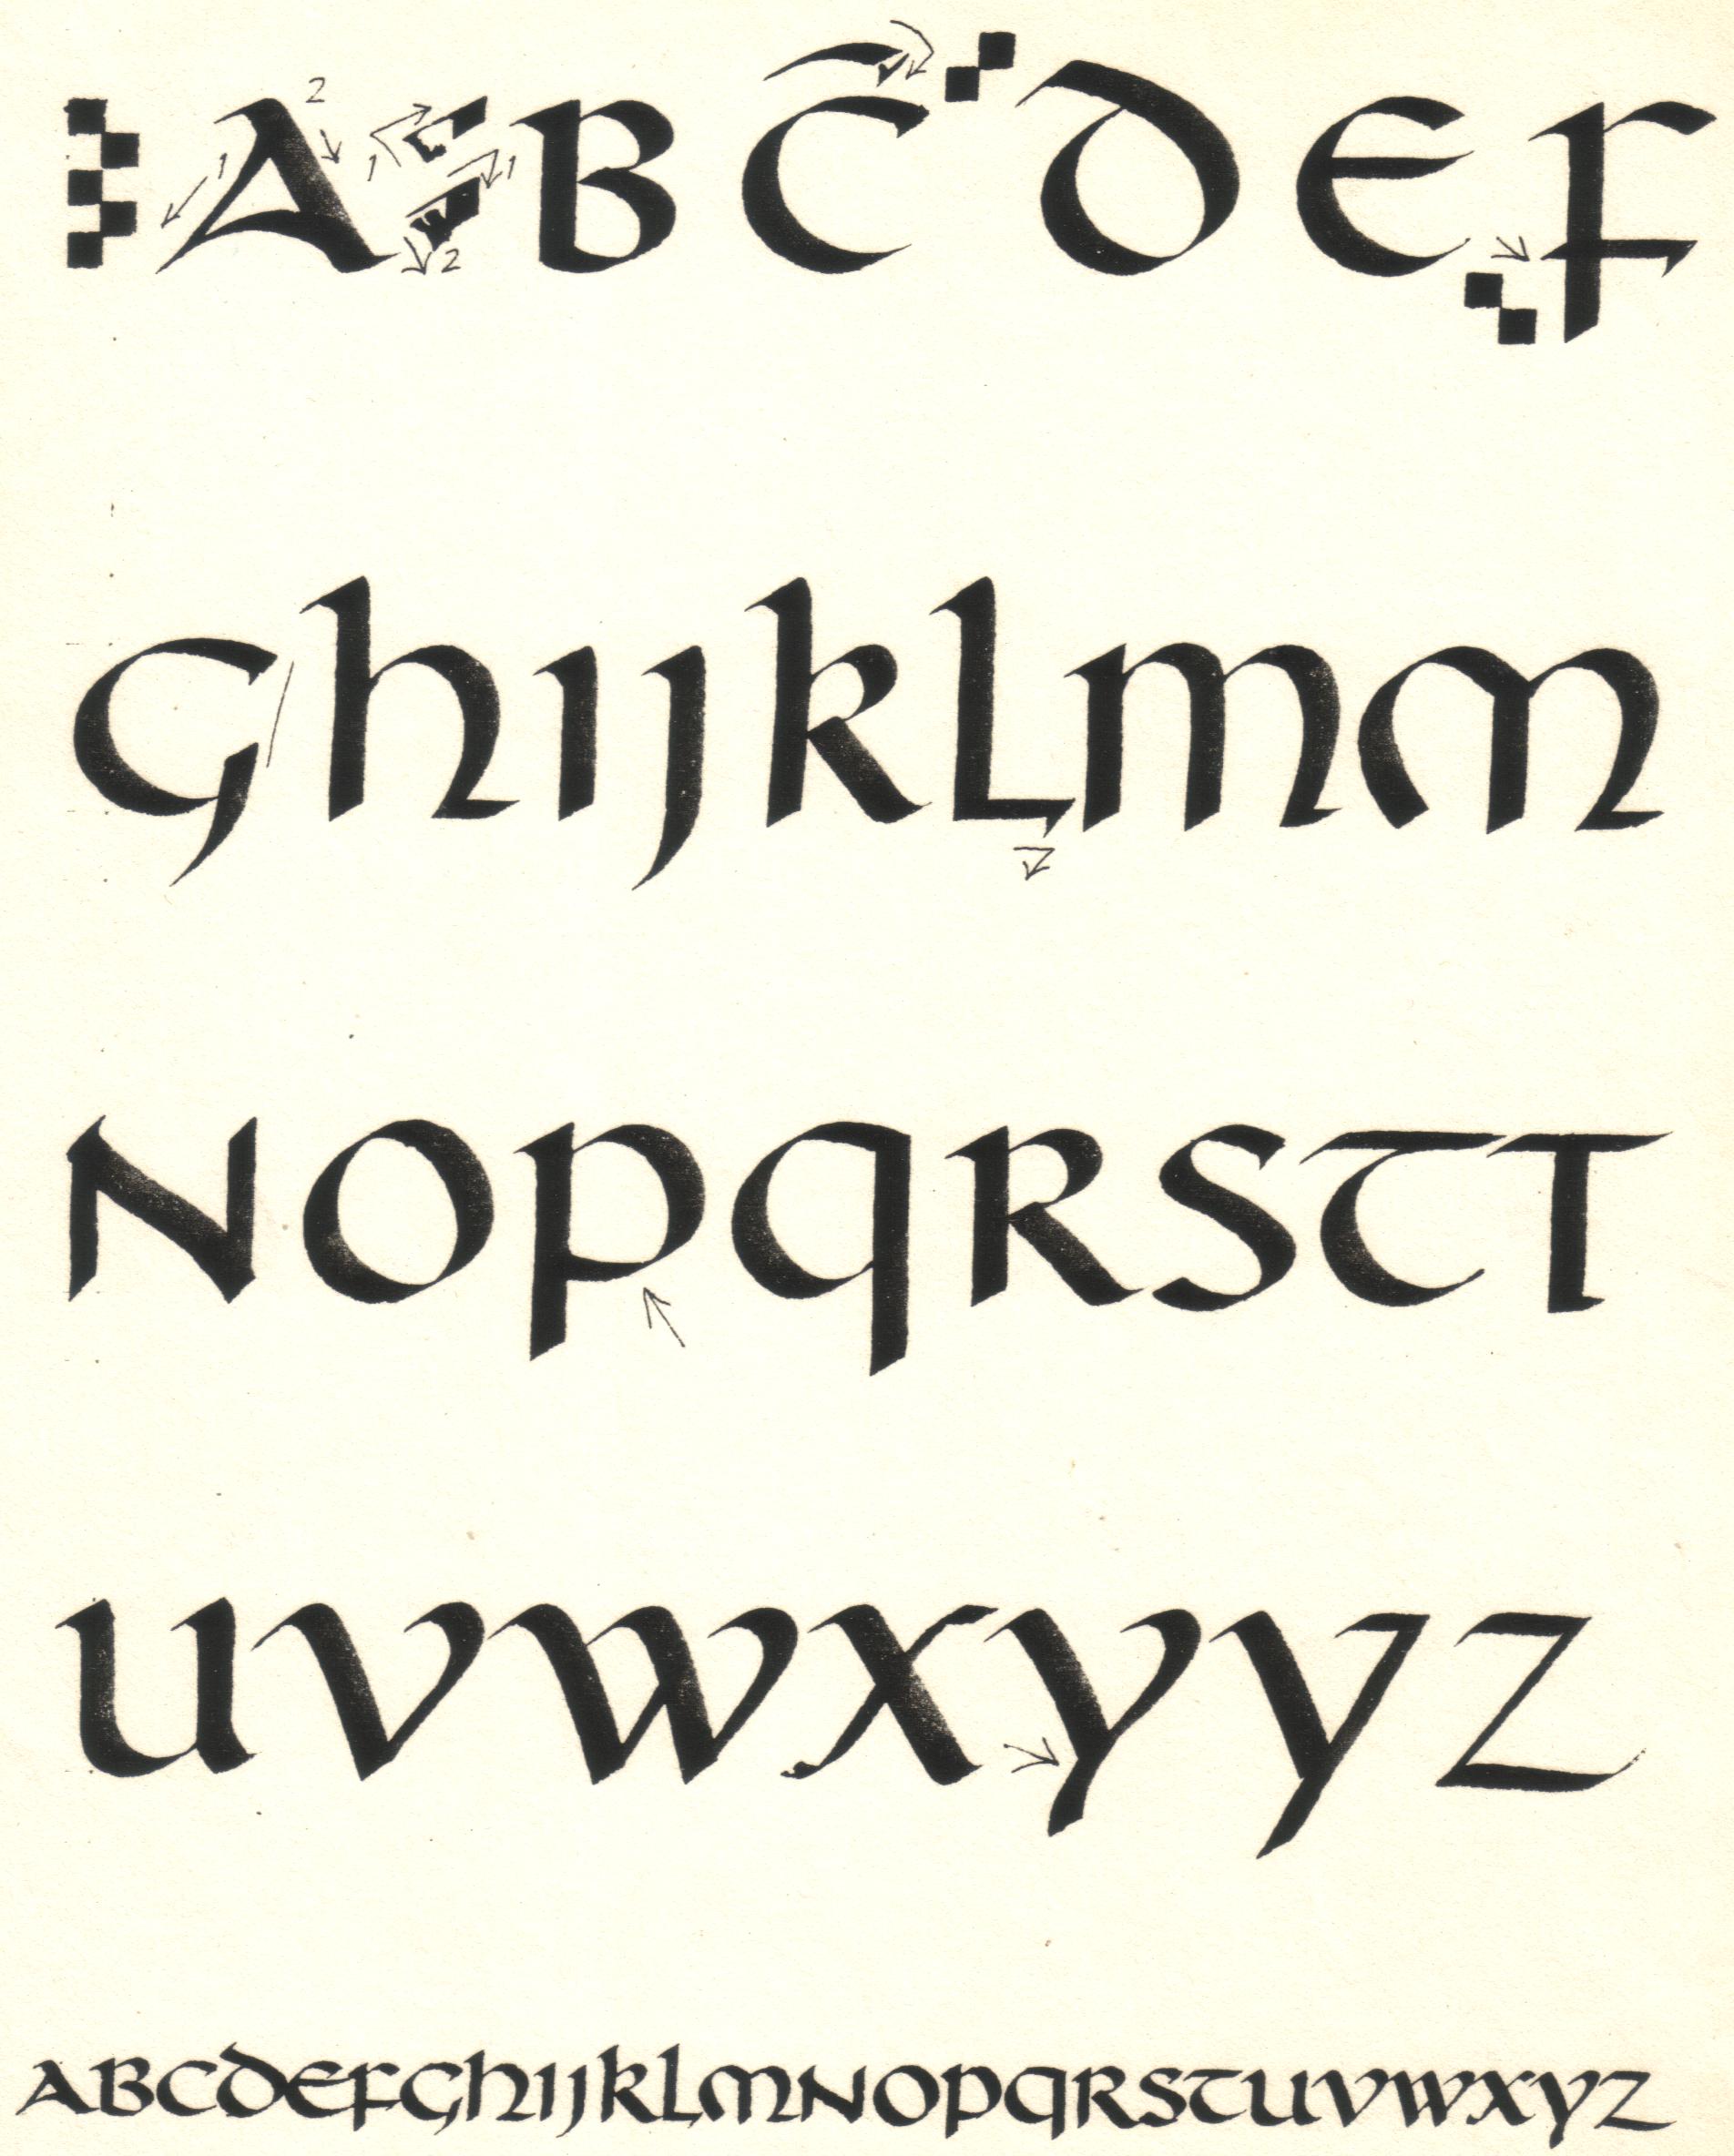 ABCDEF
GhIJklmm
NOPQRSTT
UVWXYYZ
ABCDEFGhIJklmNOPQRSTUVWXYZ